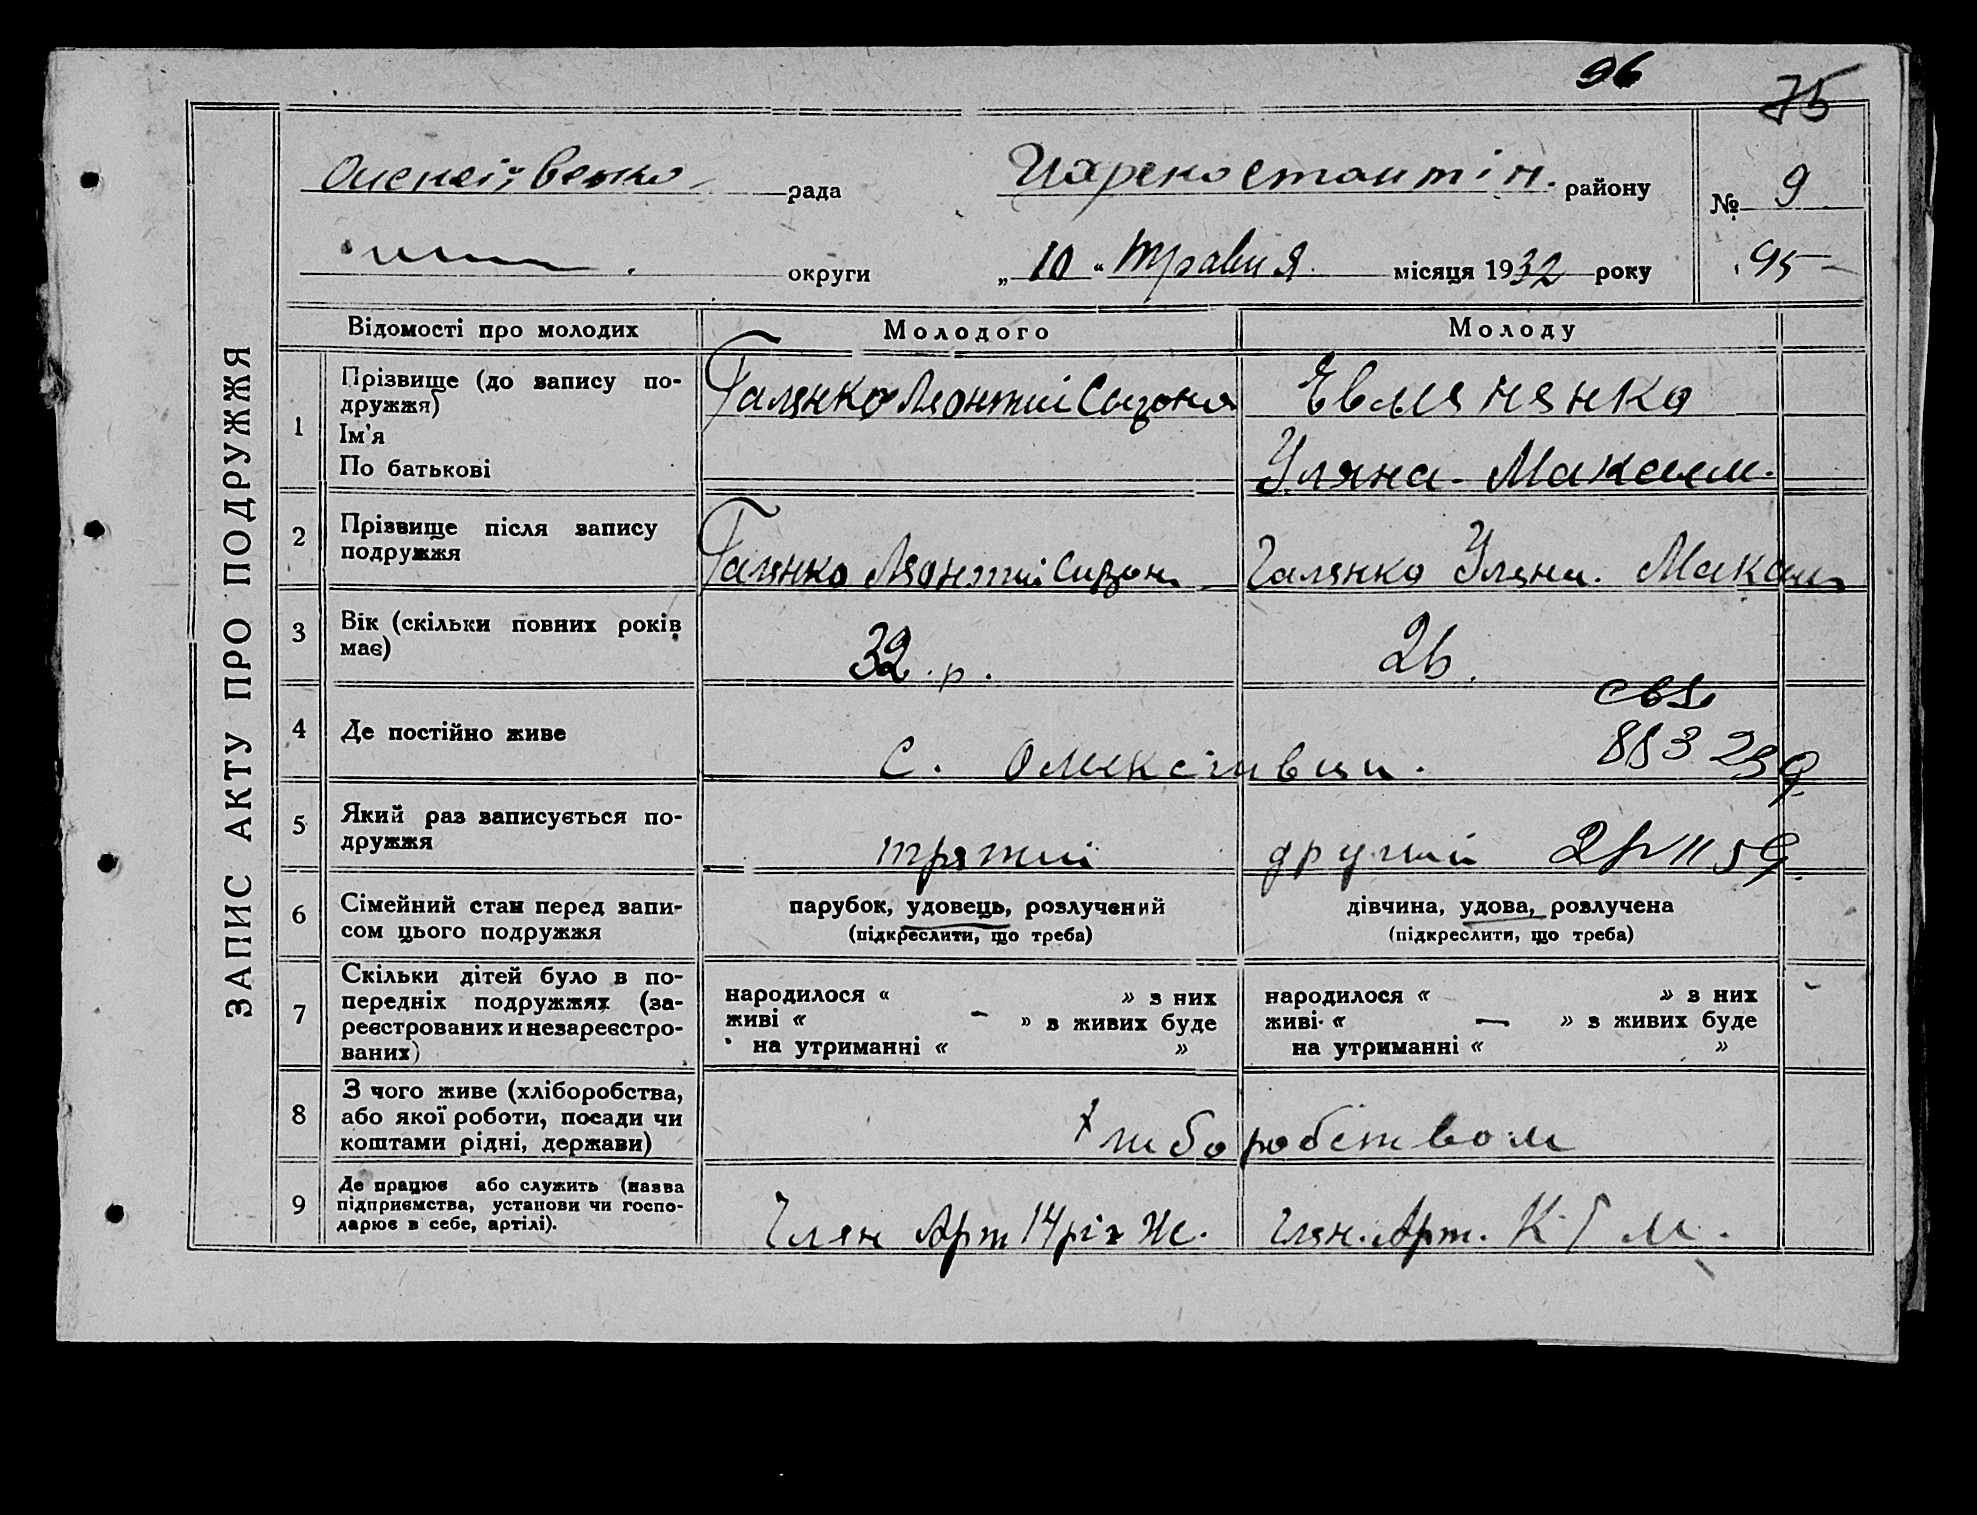 96
75
ЗАПИС АКТУ ПРО ПОДРУЖЖЯ
рада
району
№ 9
округи
„ 10 “ травня місяця 1932 року
95
Відомості про молодих
Молодого
Молоду
1
Прізвище (до запису по-
дружжя)
Ім'я
По батькові
Галянко Ляонтій Сизона
Евляненко
Уляна - Максим.
2
Прізвище після запису
подружжя
Галянко Ляонтій Сизон.
Галянко Уляна. Максим
3
Вік (скільки повних років
має)
32. р.
26.
4
Де постійно живе
с.
свд
5
Який раз записується по-
дружжя
трятий
другий
6
Сімейний стан перед запи-
сом цього подружжя
парубок, удовець, розлучений
(підкреслити, що треба)
дівчина, удова, розлучена
(підкреслити, що треба)
7
Скільки дітей було в по-
передніх подружжях (за-
реєстрованих и незареєстро-
ваних)
народилося « » з них
живі « — » в живих буде
на утриманні « »
народилося « » з них
живі « — » з живих буде
на утриманні « »
8
З чого живе (хліборобства,
або якої роботи, посади чи
коштами рідні, держави)
хлиборобством
9
Де працює або служить (назва
підприємства, установи чи госпо-
дарює в себе, артілі).
Член Арт 14 річ Ж.
член. Арт. К І М.